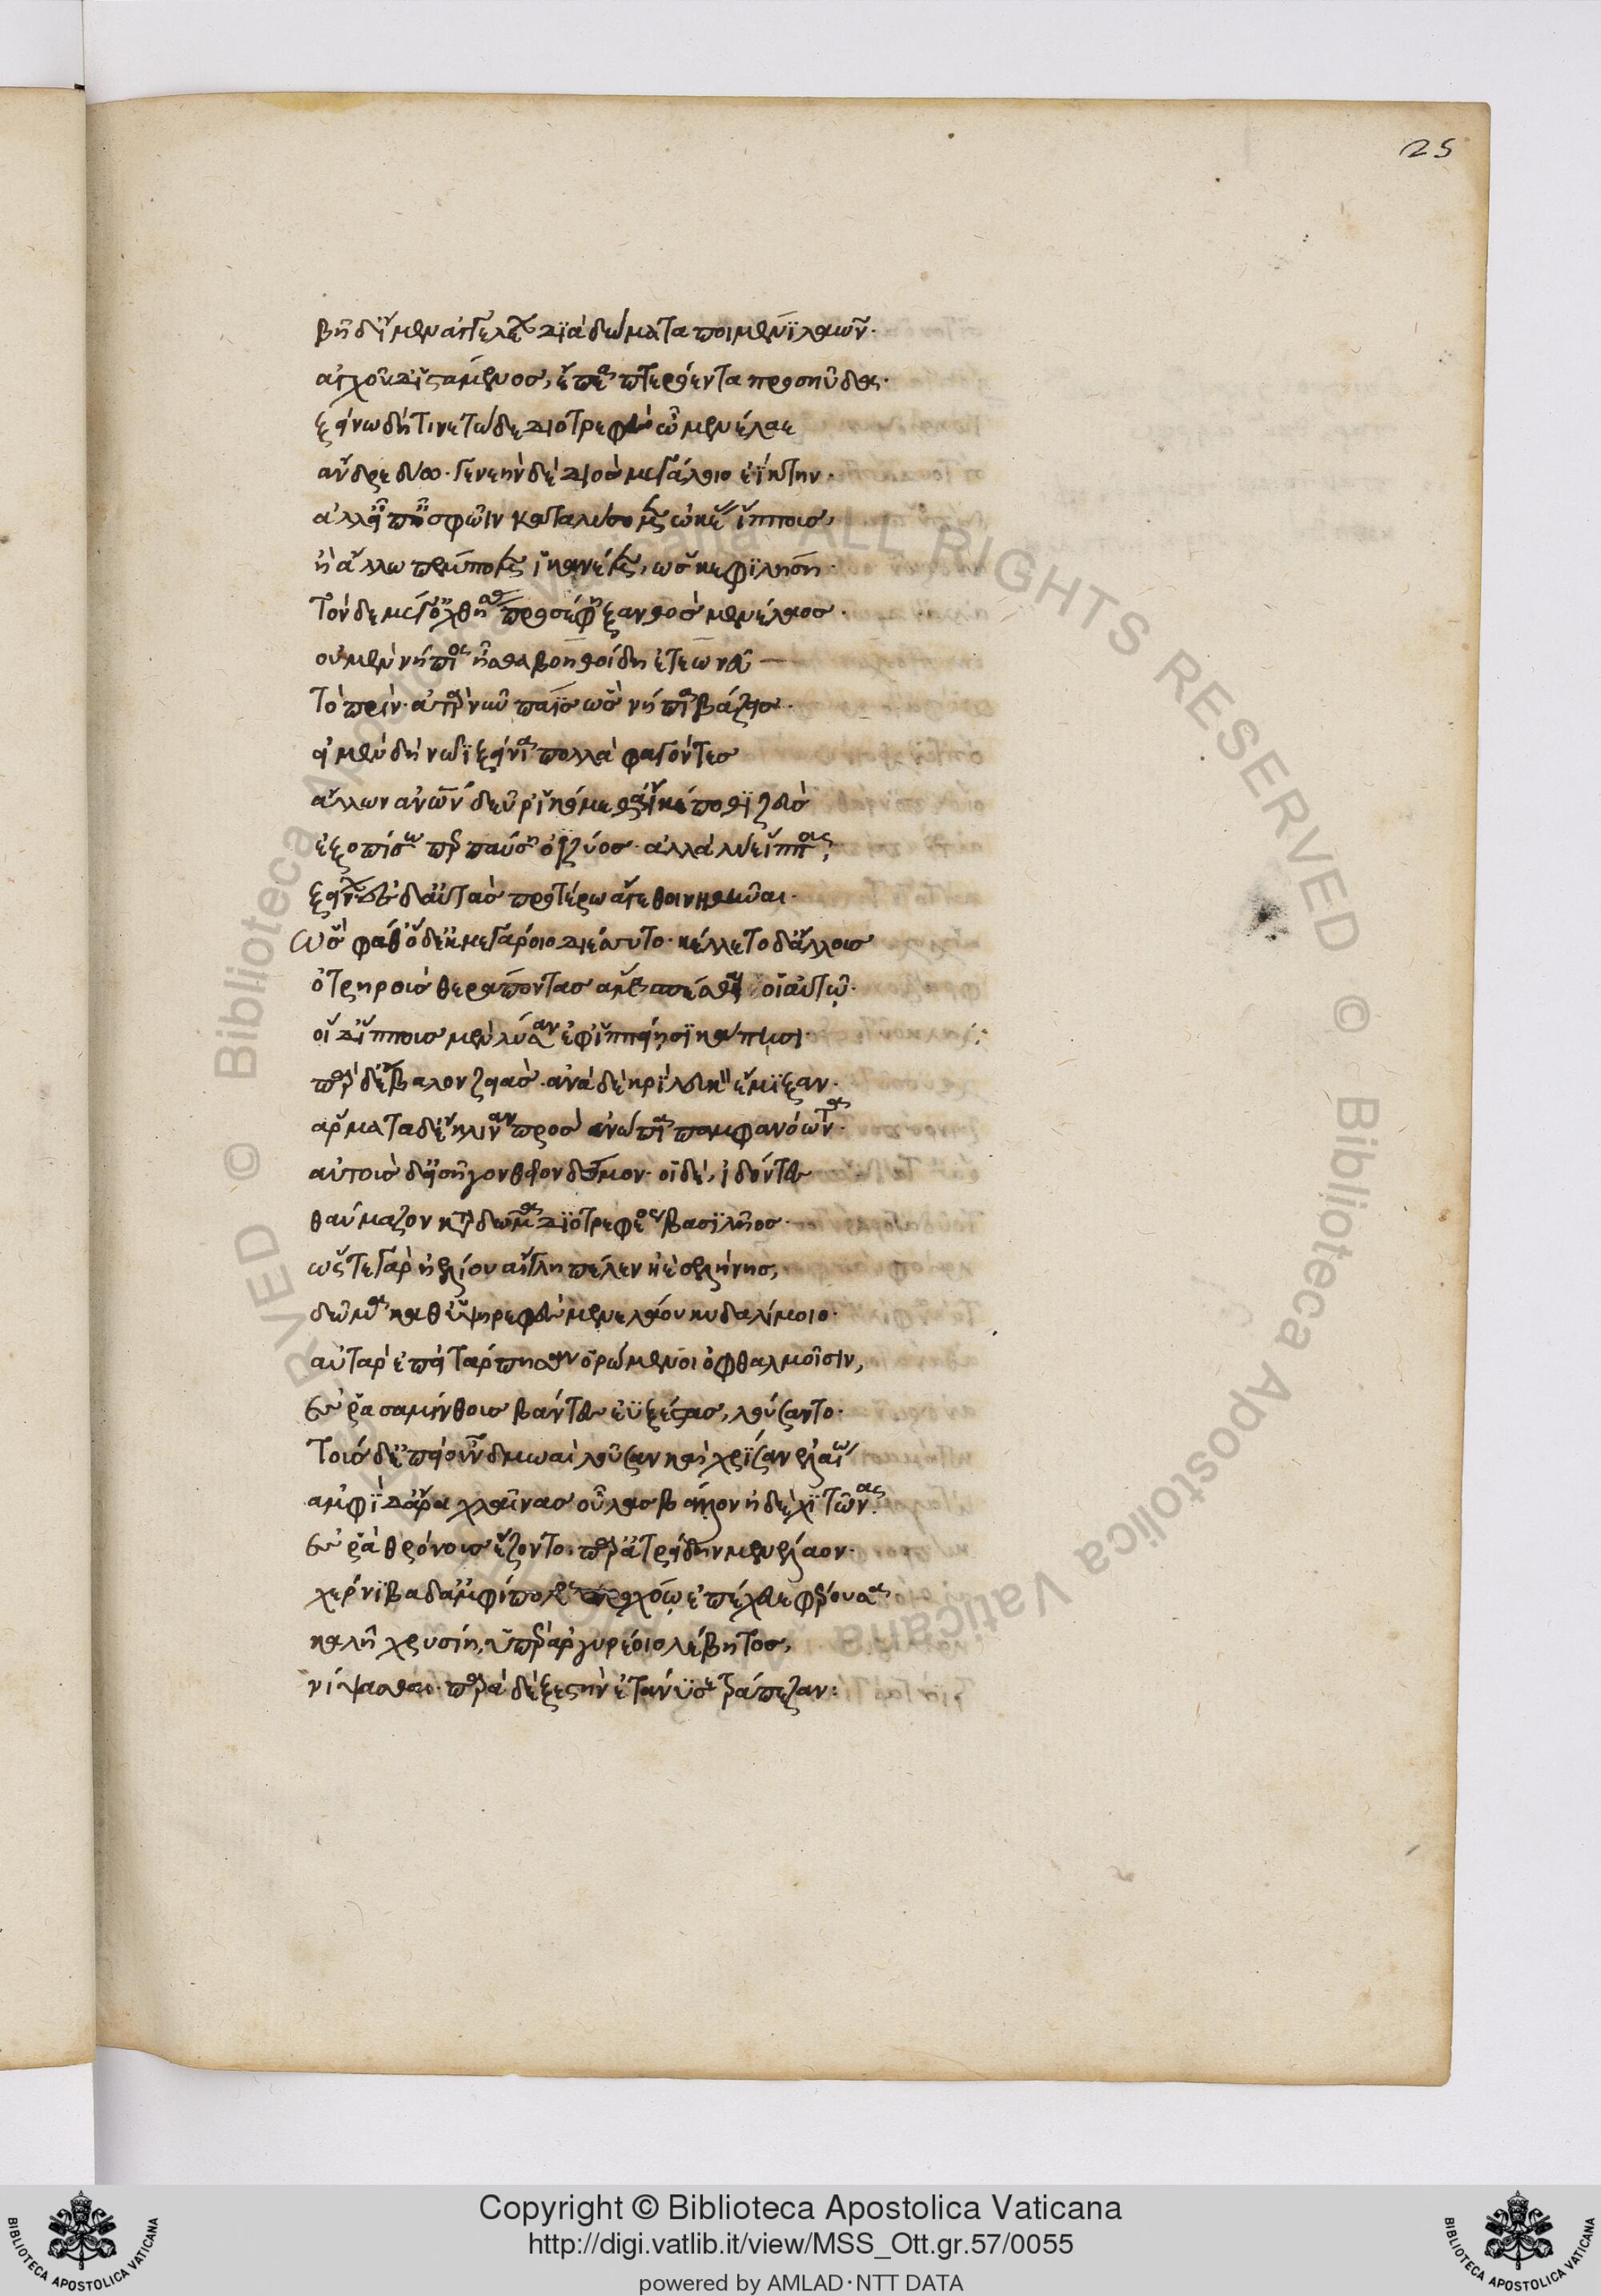 25
βῆ δ' ἴμεν ἀγγελέων διὰ δώματα ποιμένι λαῶν·
ἀγχοῦ δ' ἱστάμενος, ἔπεα πτερόεντα προσηύδα·
ξείνω δή τινε τώδε διοτρεφὲς ὦ μενέλαε
ἄνδρε δύω· γενεὴν δὲ διὸς μεγάλοιο ἔικτην·
ἀλλ' εἴπ' εἴ σφῶιν καταλύσομεν ὠκέας ἵππους,
ἢ ἄλλον πέμπομεν ἱκανέμεν, ὅς κε φιλήση·
τὸν δὲ μέγ' ὀχθήσας προσέφη ξανθὸς μενέλαος·
οὐ μὲν νήπιος ἦσθα βοηθοίδη ἐτεωνεῦ
τὸ πρίν· ἀτὰρ νῦν πάϊς ὣς νήπια βάζεις·
ἦ μὲν δὴ νῶϊ ξεινήια πολλὰ φαγόντες
ἄλλων ἀνθρώπων δεῦρ' ἱκόμεθ' αἴ κέ ποθι ζεὺς
ἐξοπίσω περ παύση ὀϊζύος· ἀλλὰ λύε ἵππους,
ξείνων· ἐς δ' αὐτοὺς προτέρω ἄγε θοινηθῆναι·
ὣς φάθ' ὁ δ' ἐκ μεγάροιο διέσσυτο· κέκλετο δ' ἄλλους
ὀτρηροὺς θεράποντας ἅμα σπέσθαι οἷ αὐτῷ·
οἳ δ' ἵππους μὲν λῦσαν
πὰρ δ' ἔβαλον ζειάς· ἀνὰ δὲ κρῖ λευκὸν ἔμιξαν·
ἅρματα δ' ἔκλιναν πρὸς ἐνώπια παμφανόωντα·
αὐτοὺς δ' εἰσῆγον θεῖον δόμον· οἳ δὲ, ἰδόντες
θαύμαζον κατὰ δῶμα διοτρεφέος βασιλῆος·
ὥς τε γὰρ ἠελίου αἴγλη πέλεν ἠὲ σελήνης,
δῶμα καθ' ὑψηρεφὲς μενελάου κυδαλίμοιο·
αὐτὰρ ἐπεὶ τάρπησαν ὁρώμενοι ὀφθαλμοῖσιν,
ἔς ῥ' ἀσαμίνθους βάντες ἐϋξέστας, λούσαντο·
τοὺς δ' ἐπεὶ οὖν δμωαὶ λοῦσαν καὶ χρῖσαν ἐλαίω
ἀμφὶ δ' ἄρα χλαίνας οὔλας βάλον ἠδὲ χιτῶνας
ἔς ῥα θρόνους ἕζοντο, παρ' ἀτρείδην μενέλαον·
χέρνιβα δ' ἀμφίπολος προχόῳ ἐπέχευε φέρουσα
καλῇ χρυσείη, ὑπὲρ ἀργυρέοιο λέβητος,
νίψασθαι· παρὰ δὲ ξεστὴν ἐτάνυσσε τράπεζαν:
Copyright © Biblioteca Apostolica Vaticana
http://digi.vatlib.it/view/MSS_Ott.gr.57/0055
powered by AMLAD·NTT DATA